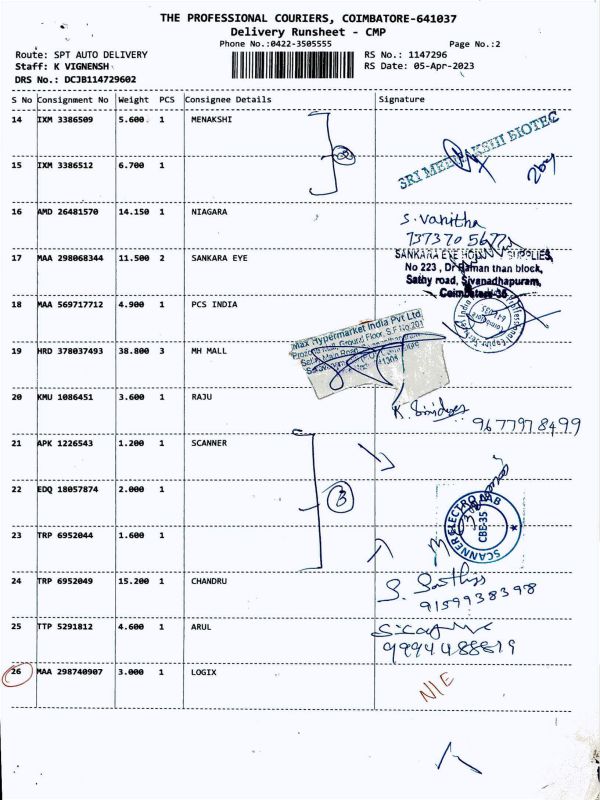 THE PROFESSIONAL COURIERS, COIMBATORE-641037
Delivery Runsheet - CMP
Phone No.:0422-3505555
Page No.:2
Route: SPT AUTO DELIVERY
RS No.: 1147296
Staff: K VIGNENSH
RS Date: 05-Apr-2023
DRS No.: DCJB114729602
S No Consignment No Weight PCS Consignee Details Signature
14 IXM 3386509 5.600 1 MENAKSHI
SRI MEENAKSHI BIOTEC
15 IXM 3386512 6.700 1
16 AMD 26481570 14.150 1 NIAGARA
S. Vanitha
73737056
17 MAA 298068344 11.500 2 SANKARA EYE
SANKARA EYE SUPPLIES,
No 223 , Dr Raman than block,
Sathy road, Sivanadhapuram,
Coimbatore-35
18 MAA 569717712 4.900 1 PCS INDIA
19 HRD 378037493 38.800 3 MH MALL
Max Hypermarket India Pvt Ltd
Ground Floor, S.F No.201
20 KMU 1086451 3.600 1 RAJU
9677978499
21 APK 1226543 1.200 1 SCANNER
22 EDQ 18057874 2.000 1
3
SCANNER ELECTRO LAB
CBE-35
23 TRP 6952044 1.600 1
24 TRP 6952049 15.200 1 CHANDRU
9159938398
25 TTP 5291812 4.600 1 ARUL
9994488819
26 MAA 298740907 3.000 1 LOGIX
N/E